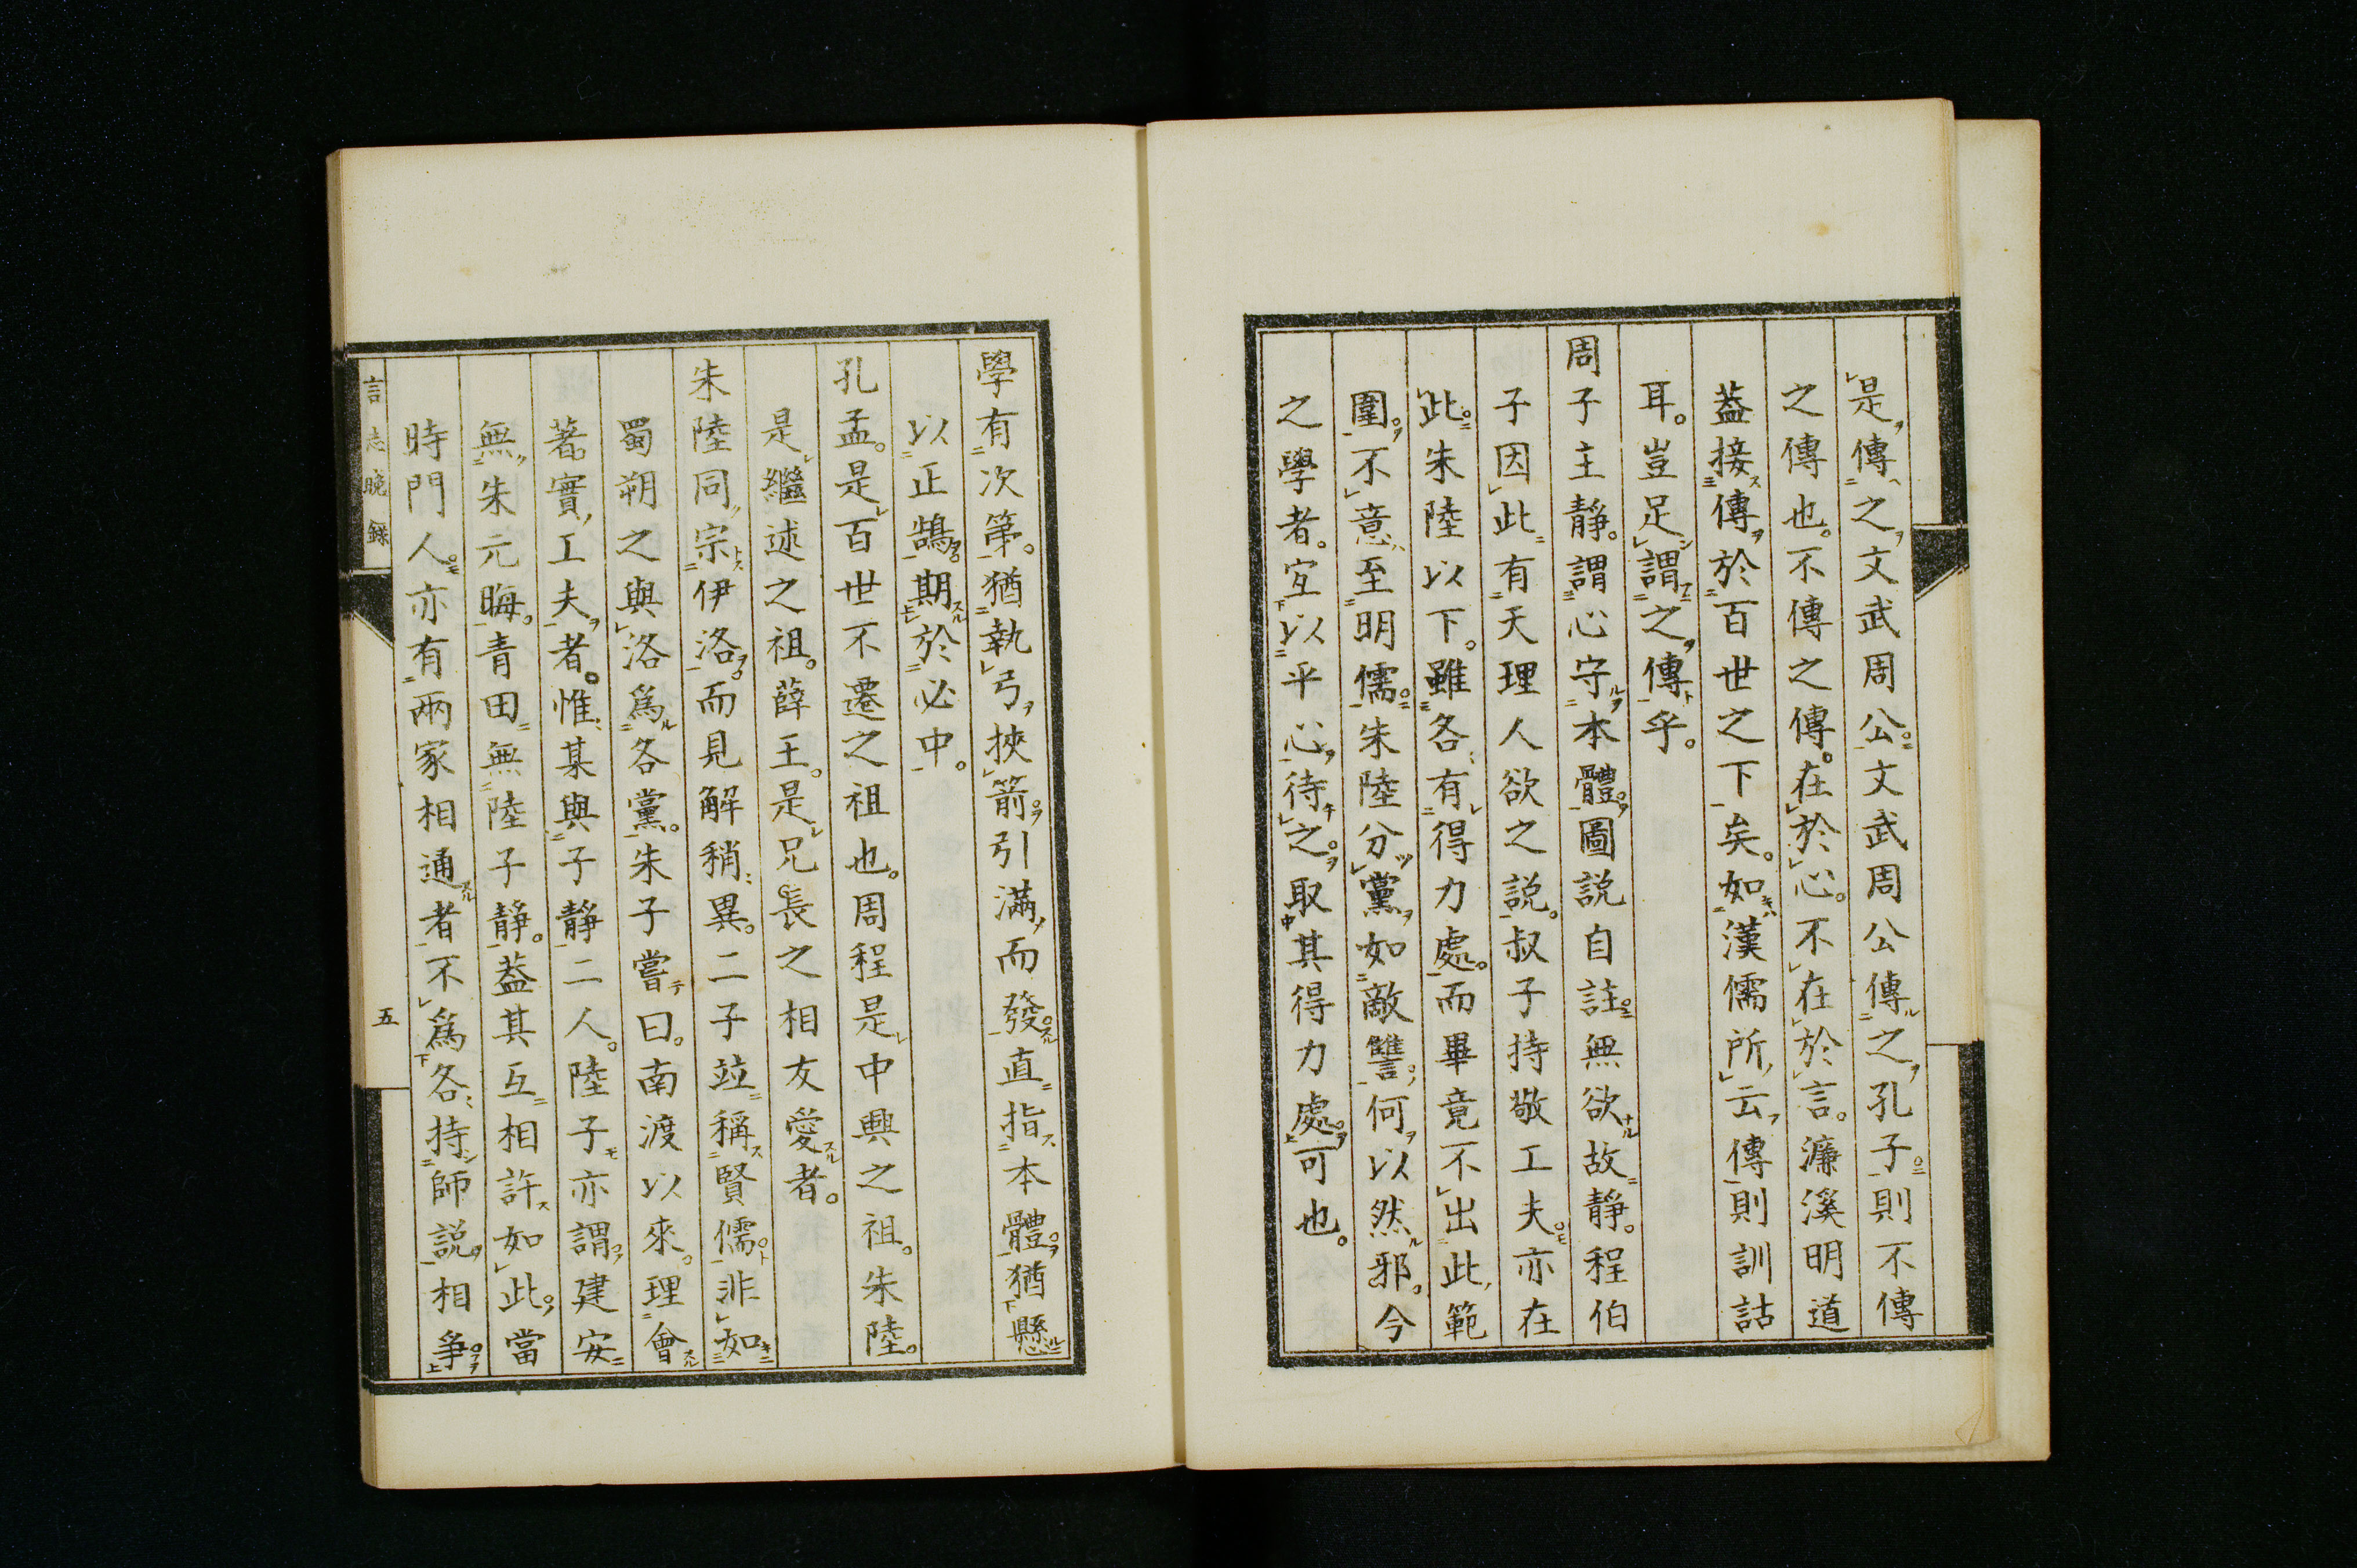 是傳之文武周公。文武周公傳之孔子。則不傳
之傳也。不傳之傳。在於心。不在於言。濂溪明道
葢接傳於百世之下矣。如漢儒所云傳則訓詁
耳。豈足謂之傳乎。
周子主靜。謂心守本體。圖説自註無欲故靜。程伯
子因此有天理人欲之説。叔子持敬工夫。亦在
此。朱陸以下。雖各有得力處。而畢竟不出此範
圍。不意至明儒。朱陸分黨如敵讐。何以然邪。今
之學者。宜以平心待之。取其得力處。可也。
學有次第。猶執弓挾箭。引滿而發。直指本體。猶懸
以正鵠。期於必中。
孔孟。是百世不遷之祖也。周程是中興之祖。朱陸。
是繼述之祖。薛王。是兄長之相友愛者。
朱陸同宗伊洛。而見解稍異。二子竝稱賢儒。非如
蜀朔之與洛爲各黨。朱子嘗曰。南渡以來。理會
著實工夫者。惟某與子靜二人。陸子亦謂。建安
無朱元晦。青田無陸子靜。葢其互相許如此。當
時門人。亦有兩家相通者。不爲各持師説相爭。
言志晩錄
五